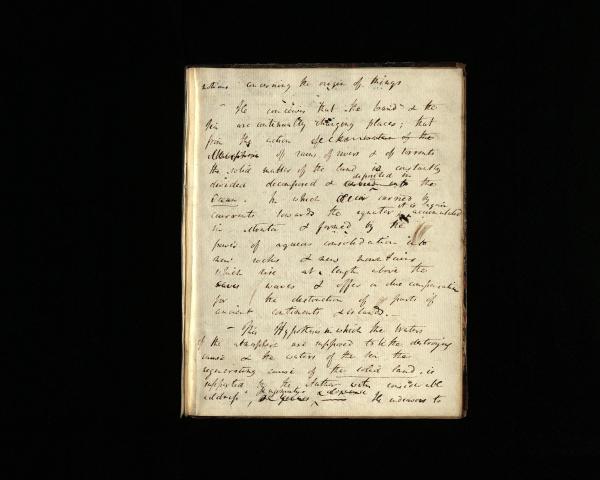 notions concerning the origin of things
- He conceives that the land & the
Sea are continually changing places; that
from the action of the waters of the
Atmosphere of rains of rivers & of torrents
the solid matter of the land is constantly
deposited in
divided decomposed & carried into the
Ocean. In which carried by
it is again
currents towards the equator accumulated
in & formed by the
power of aqueous consolidation into
new rocks & new mountains
which rise at length above the
waves & offer a due compensation
for the destruction of parts of
ancient continents & islands. -
- This Hypothesis in which the waters
of the atmosphere are supposed to be the destroying
cause & the waters of the Sea the
regenerating cause of the solid land, is
supported by the Author with considerable
address, He endeavors to